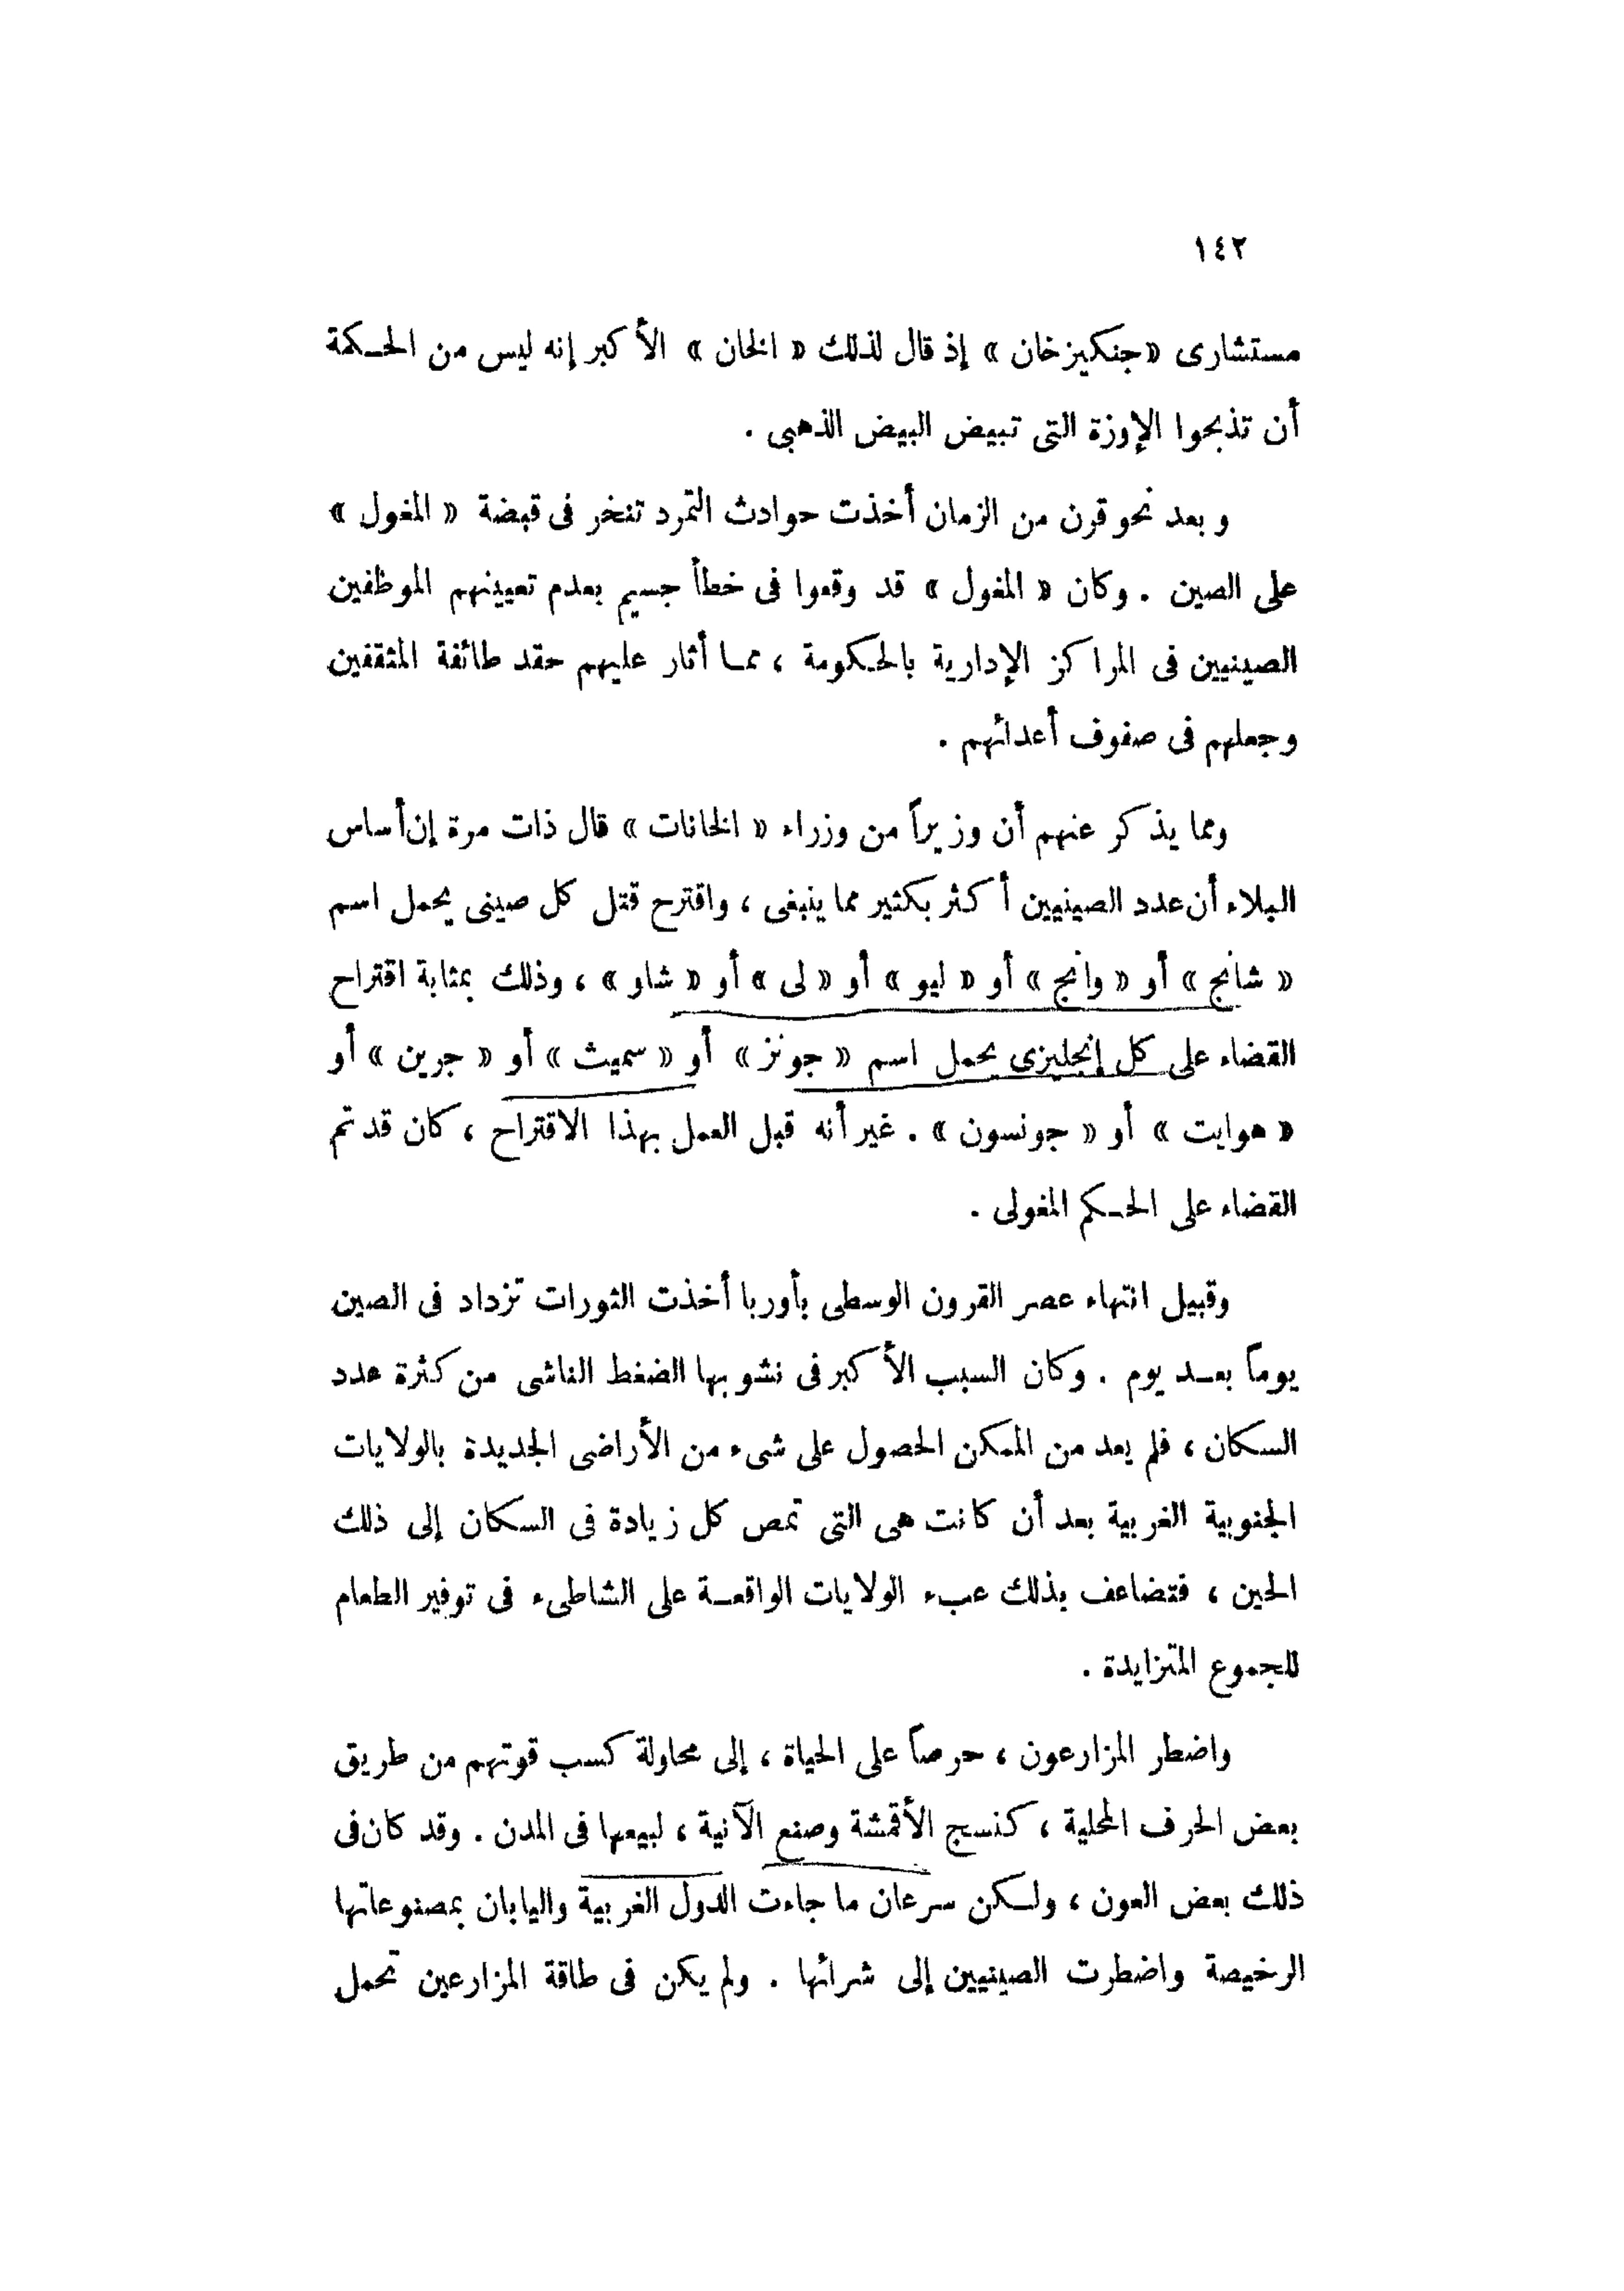 ١٤٢
مستشارى «جنكيزخان» إذ قال لذلك «الخان» الأكبر إنه ليس من الحكمة
أن تذبحوا الإوزة التى تبيض البيض الذهبى .
وبعد نحو قرن من الزمان أخذت حوادث التمرد تنخر فى قبضة «المغول»
على الصين . وكان «المغول» قد وقعوا فى خطأ جسيم بعدم تعيينهم الموظفين
الصينيين فى المراكز الإدارية بالحكومة ، مما أثار عليهم حقد طائفة المثقفين
وجعلهم فى صفوف أعدائهم .
ومما يذكر عنهم أن وزيراً من وزراء «الخانات» قال ذات مرة إن أساس
البلاء أن عدد الصينيين أكثر بكثير مما ينبغى ، واقترح قتل كل صينى يحمل اسم
«شانج» أو «وانج» أو «ليو» أو «لى» أو «شاو» ، وذلك بمثابة اقتراح
القضاء على كل إنجليزى يحمل اسم «جونز» أو «سميث» أو «جرين» أو
«هوايت» أو «جونسون» . غير أنه قبل العمل بهذا الاقتراح ، كان قد تم
القضاء على الحكم المغولى .
وقبيل انتهاء عصر القرون الوسطى بأوربا أخذت الثورات تزداد فى الصين
يوماً بعد يوم . وكان السبب الأكبر فى نشوبها الضغط الناشى من كثرة عدد
السكان ، فلم يعد من الممكن الحصول على شىء من الأراضى الجديدة بالولايات
الجنوبية الغربية بعد أن كانت هى التى تمص كل زيادة فى السكان إلى ذلك
الحين ، فتضاعف بذلك عبء الولايات الواقعة على الشاطىء فى توفير الطعام
للجموع المتزايدة .
واضطر المزارعون ، حرصاً على الحياة ، إلى محاولة كسب قوتهم من طريق
بعض الحرف المحلية ، كنسج الأقمشة وصنع الآنية ، لبيعها فى المدن . وقد كان فى
ذلك بعض العون ، ولكن سرعان ما جاءت الدول الغربية واليابان بمصنوعاتها
الرخيصة واضطرت الصينيين إلى شرائها . ولم يكن فى طاقة المزارعين تحمل